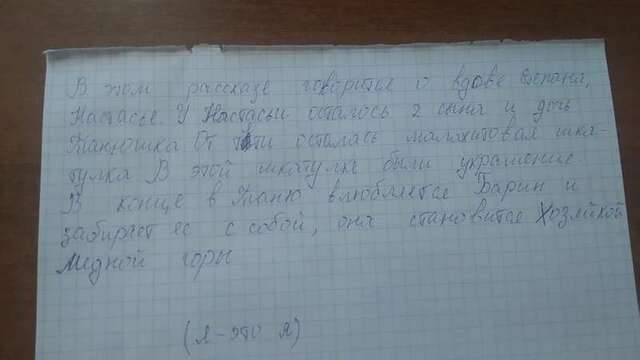 В этом рассказе говорится о вдове Степана,
Настасье. У Настасьи осталось 2 сына и дочь
Танюшка От тяти осталась малахитовая шка-
тулка В этой шкатулке были украшение.
В конце в Таню влюбляется Барин и
забирает ее с собой, она становится Хозяйкой
Медной горы
(л-это я)